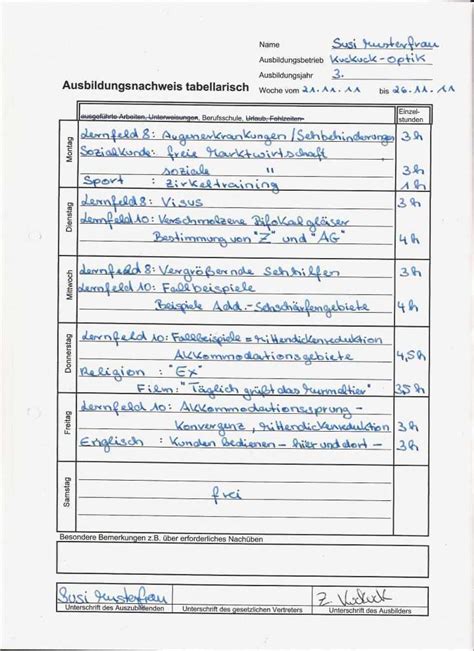 Name Susi Musterfrau
Ausbildungsbetrieb Kuckuck-Optik
Ausbildungsjahr 3.
Ausbildungsnachweis tabellarisch
Woche vom 21.11.11 bis 26.11.11
ausgeführte Arbeiten, Unterweisungen, Berufsschule, Urlaub, Fehlzeiten
Einzel-
stunden
Montag
Lernfeld 8: Augenerkrankungen/Sehbehinderungen 3h
Sozialkunde: freie Marktwirtschaft
soziale " 3h
Sport : Zirkeltraining 1h
Dienstag
Lernfeld 8: Visus 3h
Lernfeld 10: Verschmolzene Bifokalgläser
Bestimmung von "Z" und "AG" 4h
Mittwoch
Lernfeld 8: Vergrößernde Sehhilfen 3h
Lernfeld 10: Fallbeispiele
Beispiele Add.-Sehschärfengebiete 4h
Donnerstag
Lernfeld 10: Fallbeispiele = Mittendickenreduktion
Akkommodationsgebiete 4,5h
Religion : "Ex"
Film: "Täglich grüßt das Murmeltier" 3,5h
Freitag
Lernfeld 10: Akkommodationssprung-
Konvergenz, Mittendickenreduktion 3h
Englisch : Kunden bedienen - hier und dort - 3h
Samstag
frei
Besondere Bemerkungen z.B. über erforderliches Nachüben
Susi Musterfrau
Z. Kuckuck
Unterschrift des Auszubildenden
Unterschrift des gesetzlichen Vertreters
Unterschrift des Ausbilders